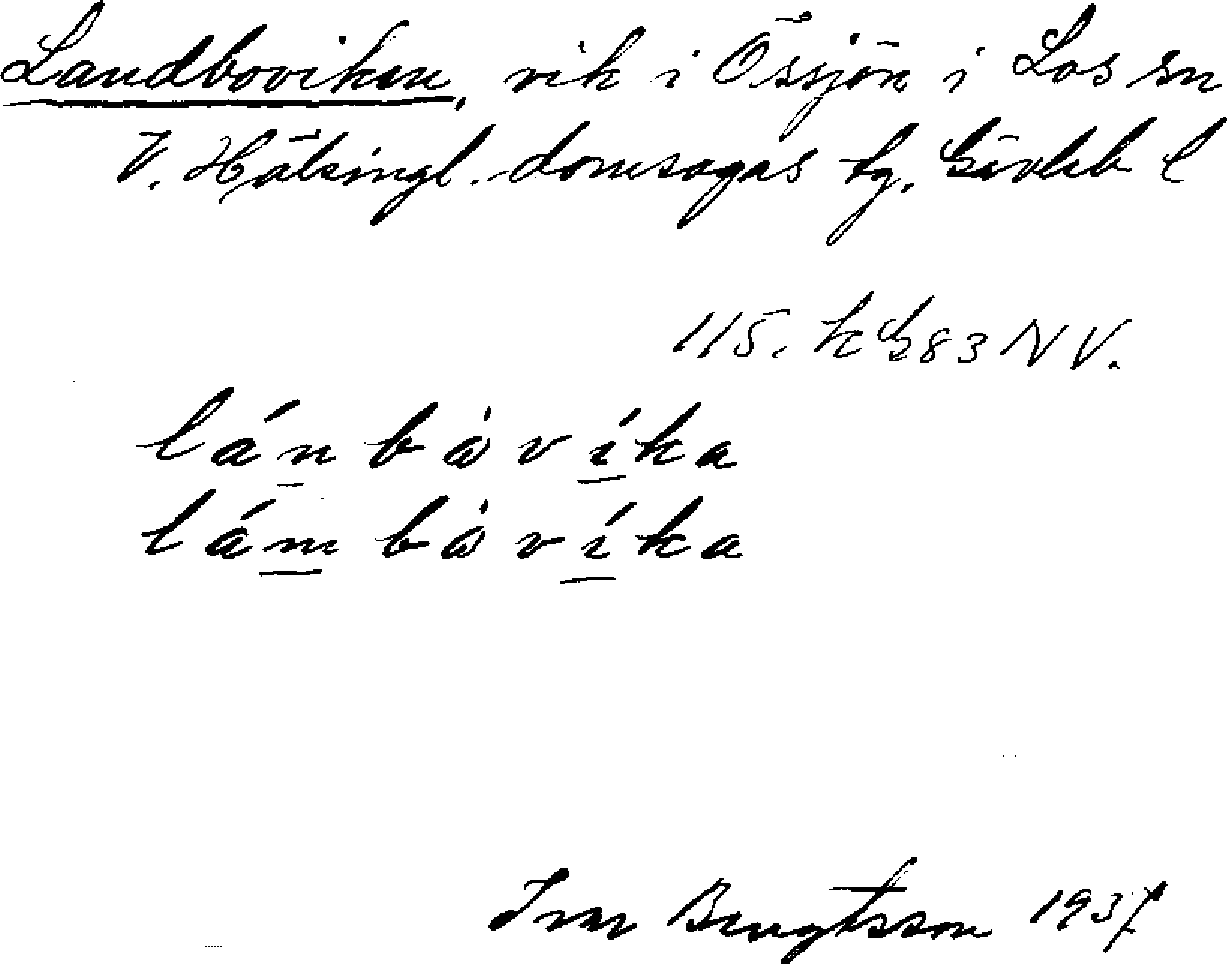 Landboviken, vik i Össjön i Los sn
V. Hälsingl. domsagas tg. Gävleb l
115. k G 83 NV.
lán bȧ víka
lám bȧ víka
Ivar Bengtsson 1937